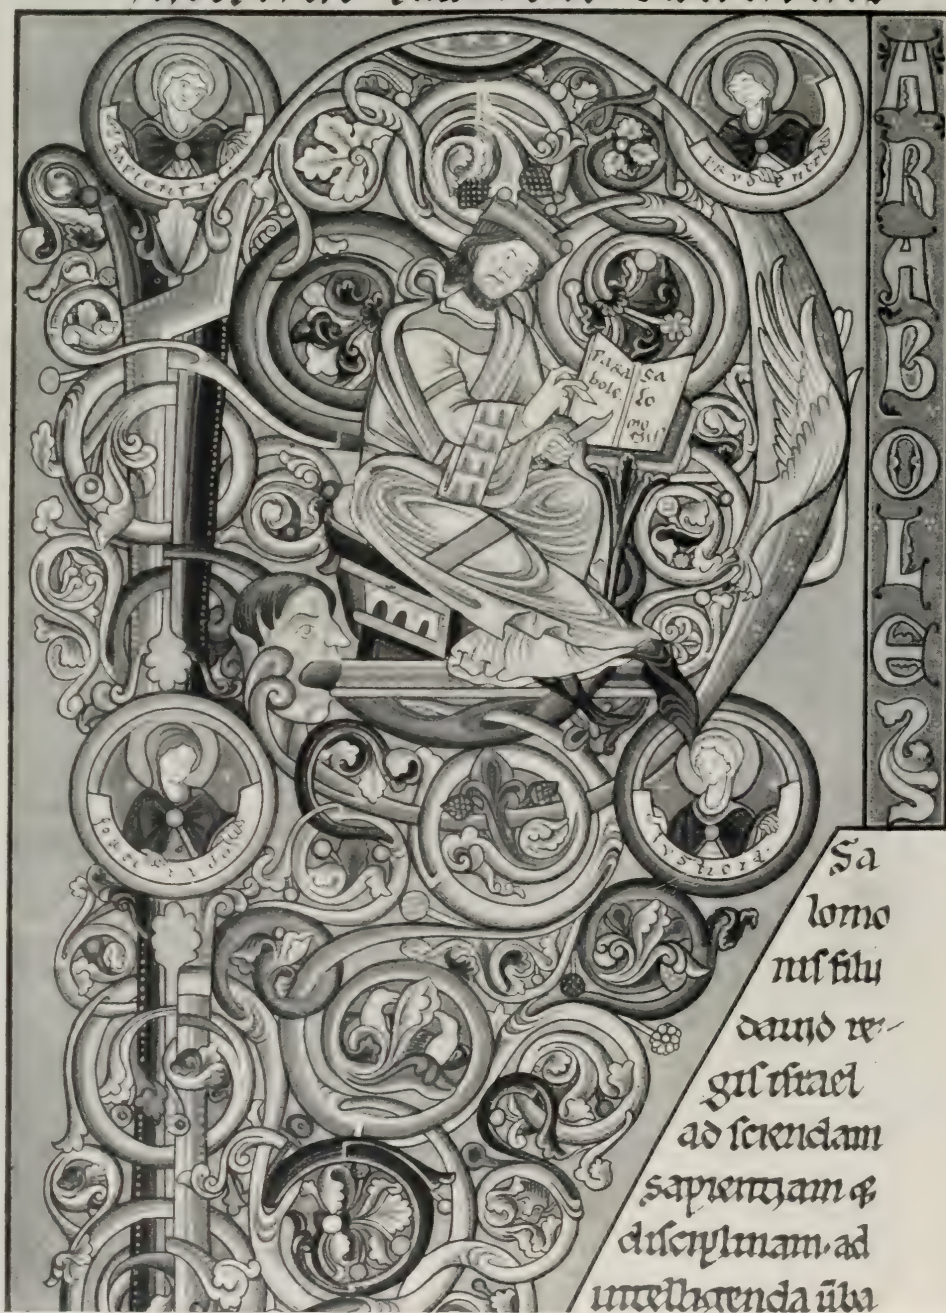 sapientia
prudentia
Para
bole
Sa
lo
mo
nis
ARABOLES
Sa
lomo
nis filii
dauid re-
gis israel
ad sciendam
sapientiam &
disciplinam. ad
intelligenda ūba